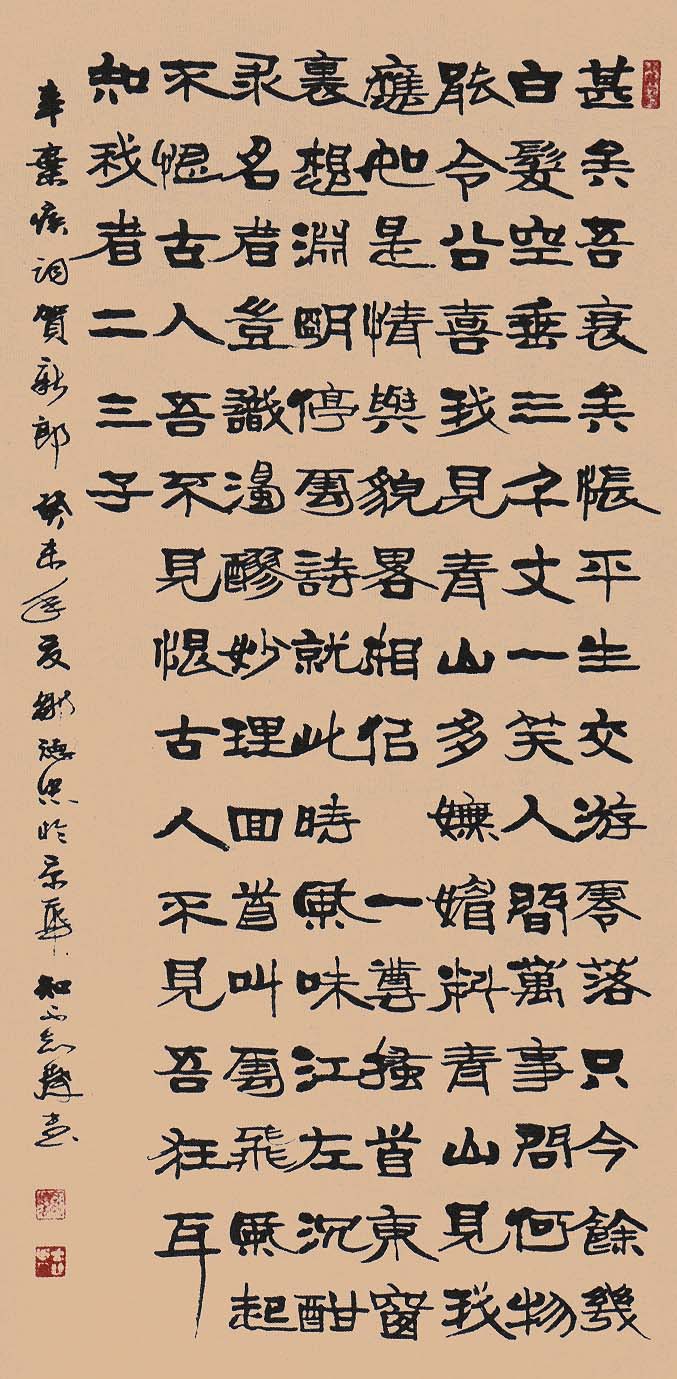 甚矣吾衰矣悵平生交游零落只今餘幾
白髮空垂三千丈一笑人間萬事問何物
能令公喜我見青山多嫵媚料青山見我
應如是情與貌畧相佀 一尊搔首東窗
裏想淵明停雲詩就此時風味江左沉酣
求名者豈識濁醪妙理回首叫雲飛風起
不恨古人吾不見恨古人不見吾狂耳
知我者二三子
辛棄疾詞賀新郎 癸未年夏 德 於京華